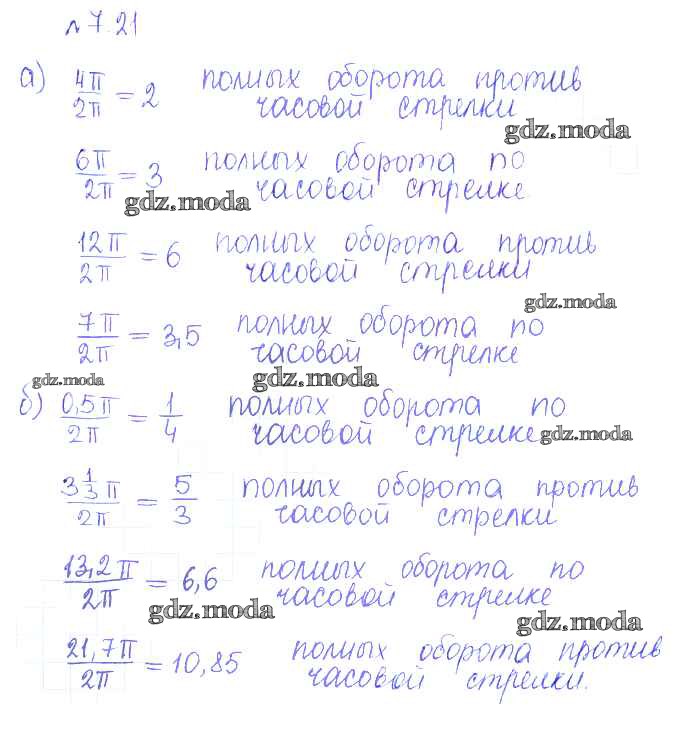 № 7.21
а) 4π/2π = 2 полных оборота против
часовой стрелки
gdz.moda
6π/2π = 3 полных оборота по
часовой стрелке
gdz.moda
12π/2π = 6 полных оборота против
часовой стрелки
gdz.moda
7π/2π = 3,5 полных оборота по
часовой стрелке
gdz.moda gdz.moda
б) 0,5π/2π = 1/4 полных оборота по
часовой стрелке gdz.moda
3 1/3 π/2π = 5/3 полных оборота против
часовой стрелки
13,2π/2π = 6,6 полных оборота по
часовой стрелке
gdz.moda gdz.moda
21,7π/2π = 10,85 полных оборота против
часовой стрелки.